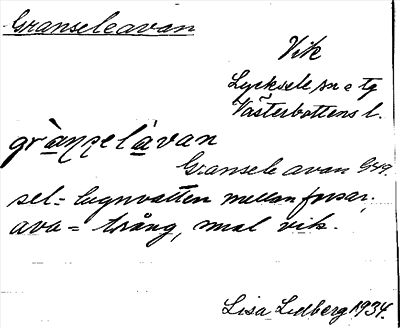 Granseleavan
Vik
Lycksele sn o tg
Västerbottens l.
grànselàvan
Gransele avan G49.
sel = lugnvatten mellan forsar;
ava = trång, smal vik.
Lisa Lidberg 1934.